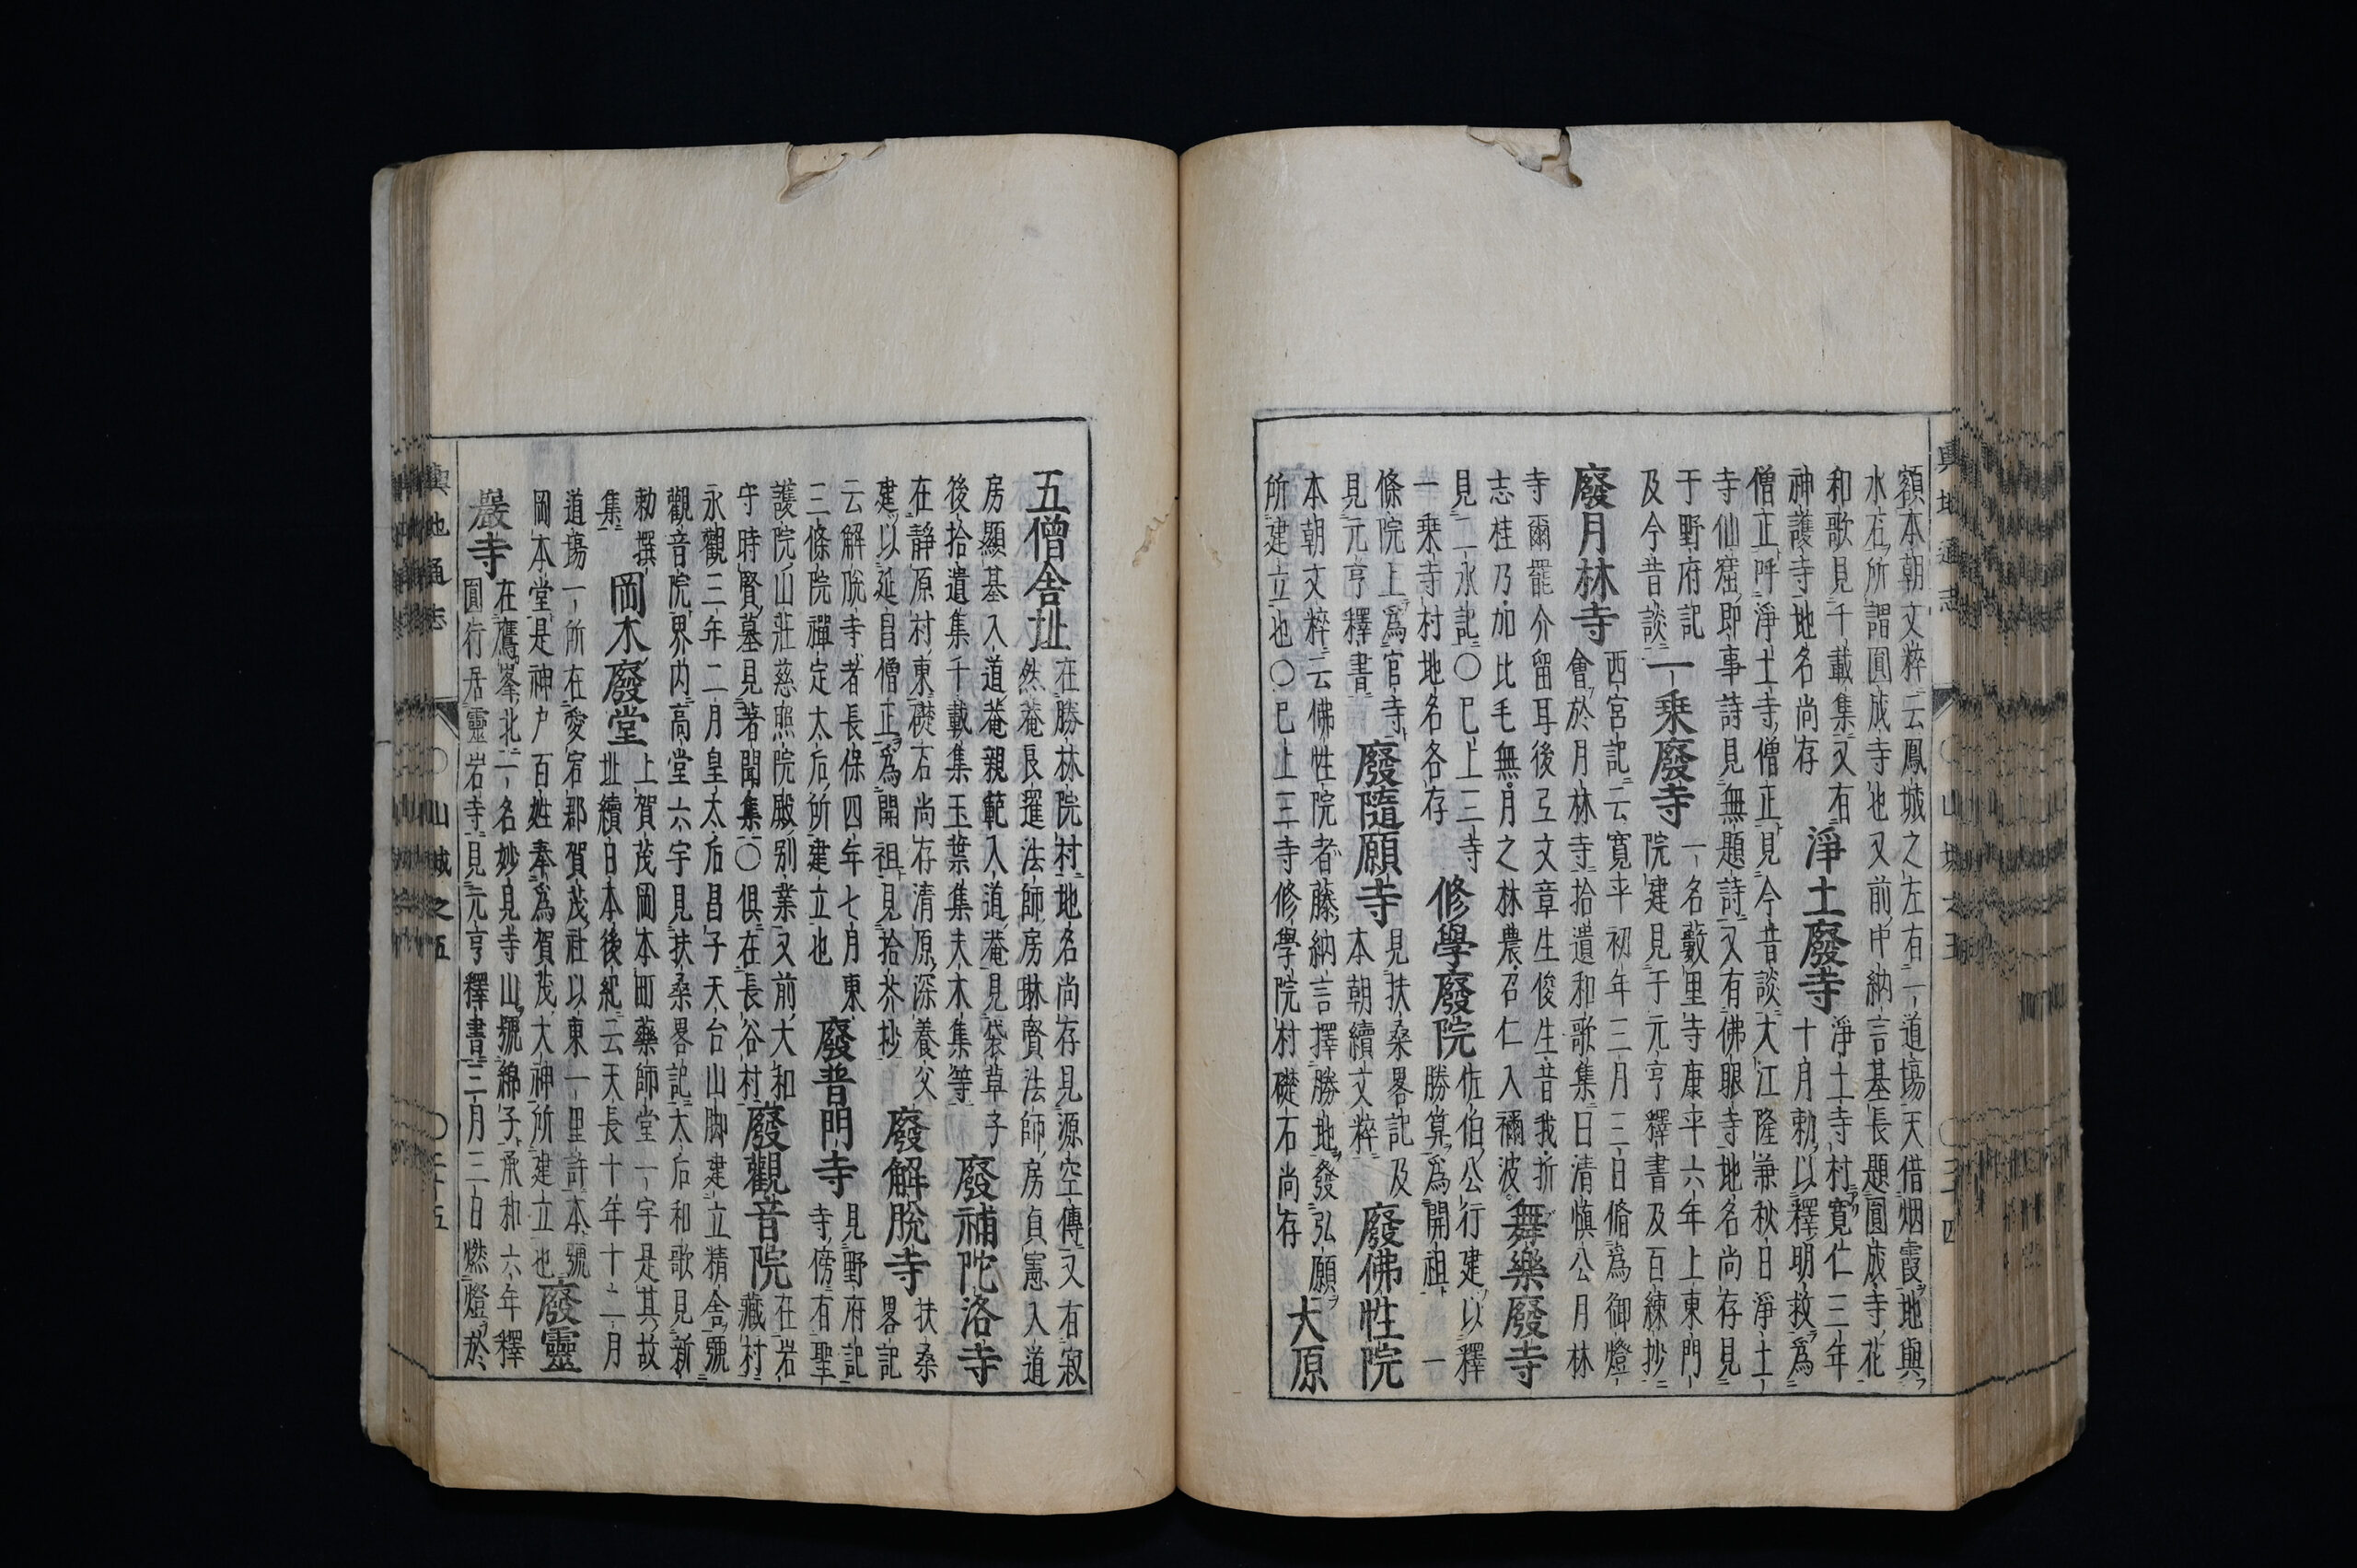 輿地通志 〇山城之五 〇三十四
額本朝文粹云鳳城之左右一道場天借烟霞地與
水石所謂圓成寺也又前中納言基長題圓成寺花
和歌見千載集又有
神護寺地名尚存
淨土廢寺
淨土寺村寬仁三年
十月勅以釋明救爲
僧正呼淨土寺僧正見今昔談大江隆兼秋日淨土
寺仙窟即事詩見無題詩又有佛眼寺地名尚存見
于野府記
及今昔談
一乗廢寺
一名藪里寺康平六年上東門
院建見于元亨釋書及百練抄
廢月林寺
西宮記云寬平初年三月三日脩爲御燈
會於月林寺拾遺和歌集曰清慎公月林
寺爾罷介留耳後江文章生俊生昔我折
志桂乃加比毛無月之林農召仁入禰波
舞樂廢寺
見二永記〇巳上三寺
一乗寺村地名各存
修學廢院
佐伯公行建以釋
勝算爲開祖一
條院上爲官寺
見元亨釋書
廢隨願寺
見扶桑畧記及
本朝續文粹
廢佛性院
本朝文粹云佛性院者藤納言擇勝地發弘願
所建立也〇巳上三寺修學院村礎石尚存
大原
五僧舍址
在勝林院村地名尚存見源空傳又有寂
然菴良暹法師房琳賢法師房貞憲入道
房顯基入道菴親範入道菴見袋草子
後拾遺集千載集玉葉集夫木集等
廢補陀洛寺
在靜原村東礎石尚存清原深養父
建以延昌僧正爲開祖見拾芥抄
廢解脫寺
扶桑
畧記
云解脫寺者長保四年七月東
三條院禪定太后所建立也
廢普門寺
見野府記
寺傍有聖
護院山莊慈照院殿別業又前大和
守時賢墓見著聞集〇俱在長谷村
廢觀音院
在岩
藏村
永觀三年二月皇太后昌子天台山脚建立精舍號
觀音院界内高堂六宇見扶桑畧記太后和歌見新
勅撰
集
岡本廢堂
上賀茂岡本町藥師堂一宇是其故
址續日本後紀云天長十年十二月
道場一所在愛宕郡賀茂社以東一里許本號
岡本堂是神戸百姓奉爲賀茂大神所建立也
廢靈
巖寺
在鷹峯北一名妙見寺山號綿子承和六年釋
圓行居靈岩寺見元亨釋書三月三日燃燈於
輿地通志 〇山城之五 〇三十五